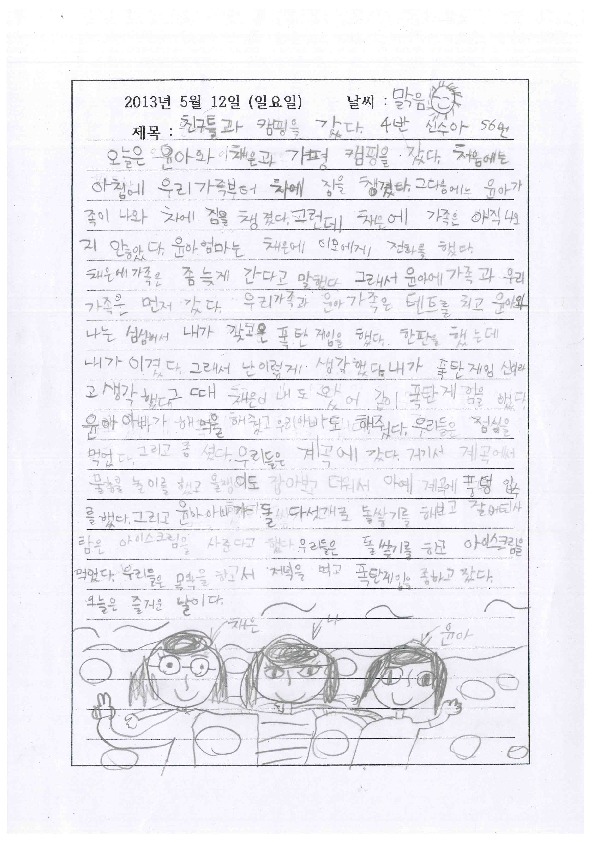 2013년 5월 12일 (일요일) 날씨 : 맑음
제목 : 친구들과 캠핑을 갔다. 4반 신수아 56번
오늘은 윤아와 채은과 가평 캠핑을 갔다. 처음에는
아침에 우리가족부터 차에 짐을 챙겼다. 그다음에는 윤아가
족이 나와 차에 짐을 챙겼다. 그런데 채은에 가족은 아직 나오
지 않았다. 윤아엄마는 채은에 이모에게 전화를 했다.
채은에가족은 좀늦게 간다고 말했다 그래서 윤아에가족과 우리
가족은 먼저 갔다. 우리가족과 윤아가족은 텐트를 치고 윤아와
나는 심심해서 내가 갖고온 폭탄게임을 했다. 한판을 했는데
내가 이겼다. 그래서 난 이렇게 생각했다 내가 폭탄게임
고 생각했다 그 때 채은이네도 왔어 같이 폭탄게임을 했다
윤아아빠가 해줬고 우리아빠도 해줬다. 우리들은 점심을
먹었다. 그리고 좀 셨다. 우리들은 계곡에 갔다. 거기서 계곡에서
놀이를 했고 올챙이도 잡아봤 더워서 아예 계곡에 풍덩 입수
를했다. 그리고 윤아아빠가 돌 다섯개로 돌쌓기를 해보고 잘 사
람은 아이스크림을 사준다고 했다 우리들은 돌쌓기를 하고 아이스크림을
먹었다. 우리들은 하고서 저녁을 먹고 폭탄게임을 좀하고 갔다.
오늘은 즐거운 날이다.
채은 나 윤아